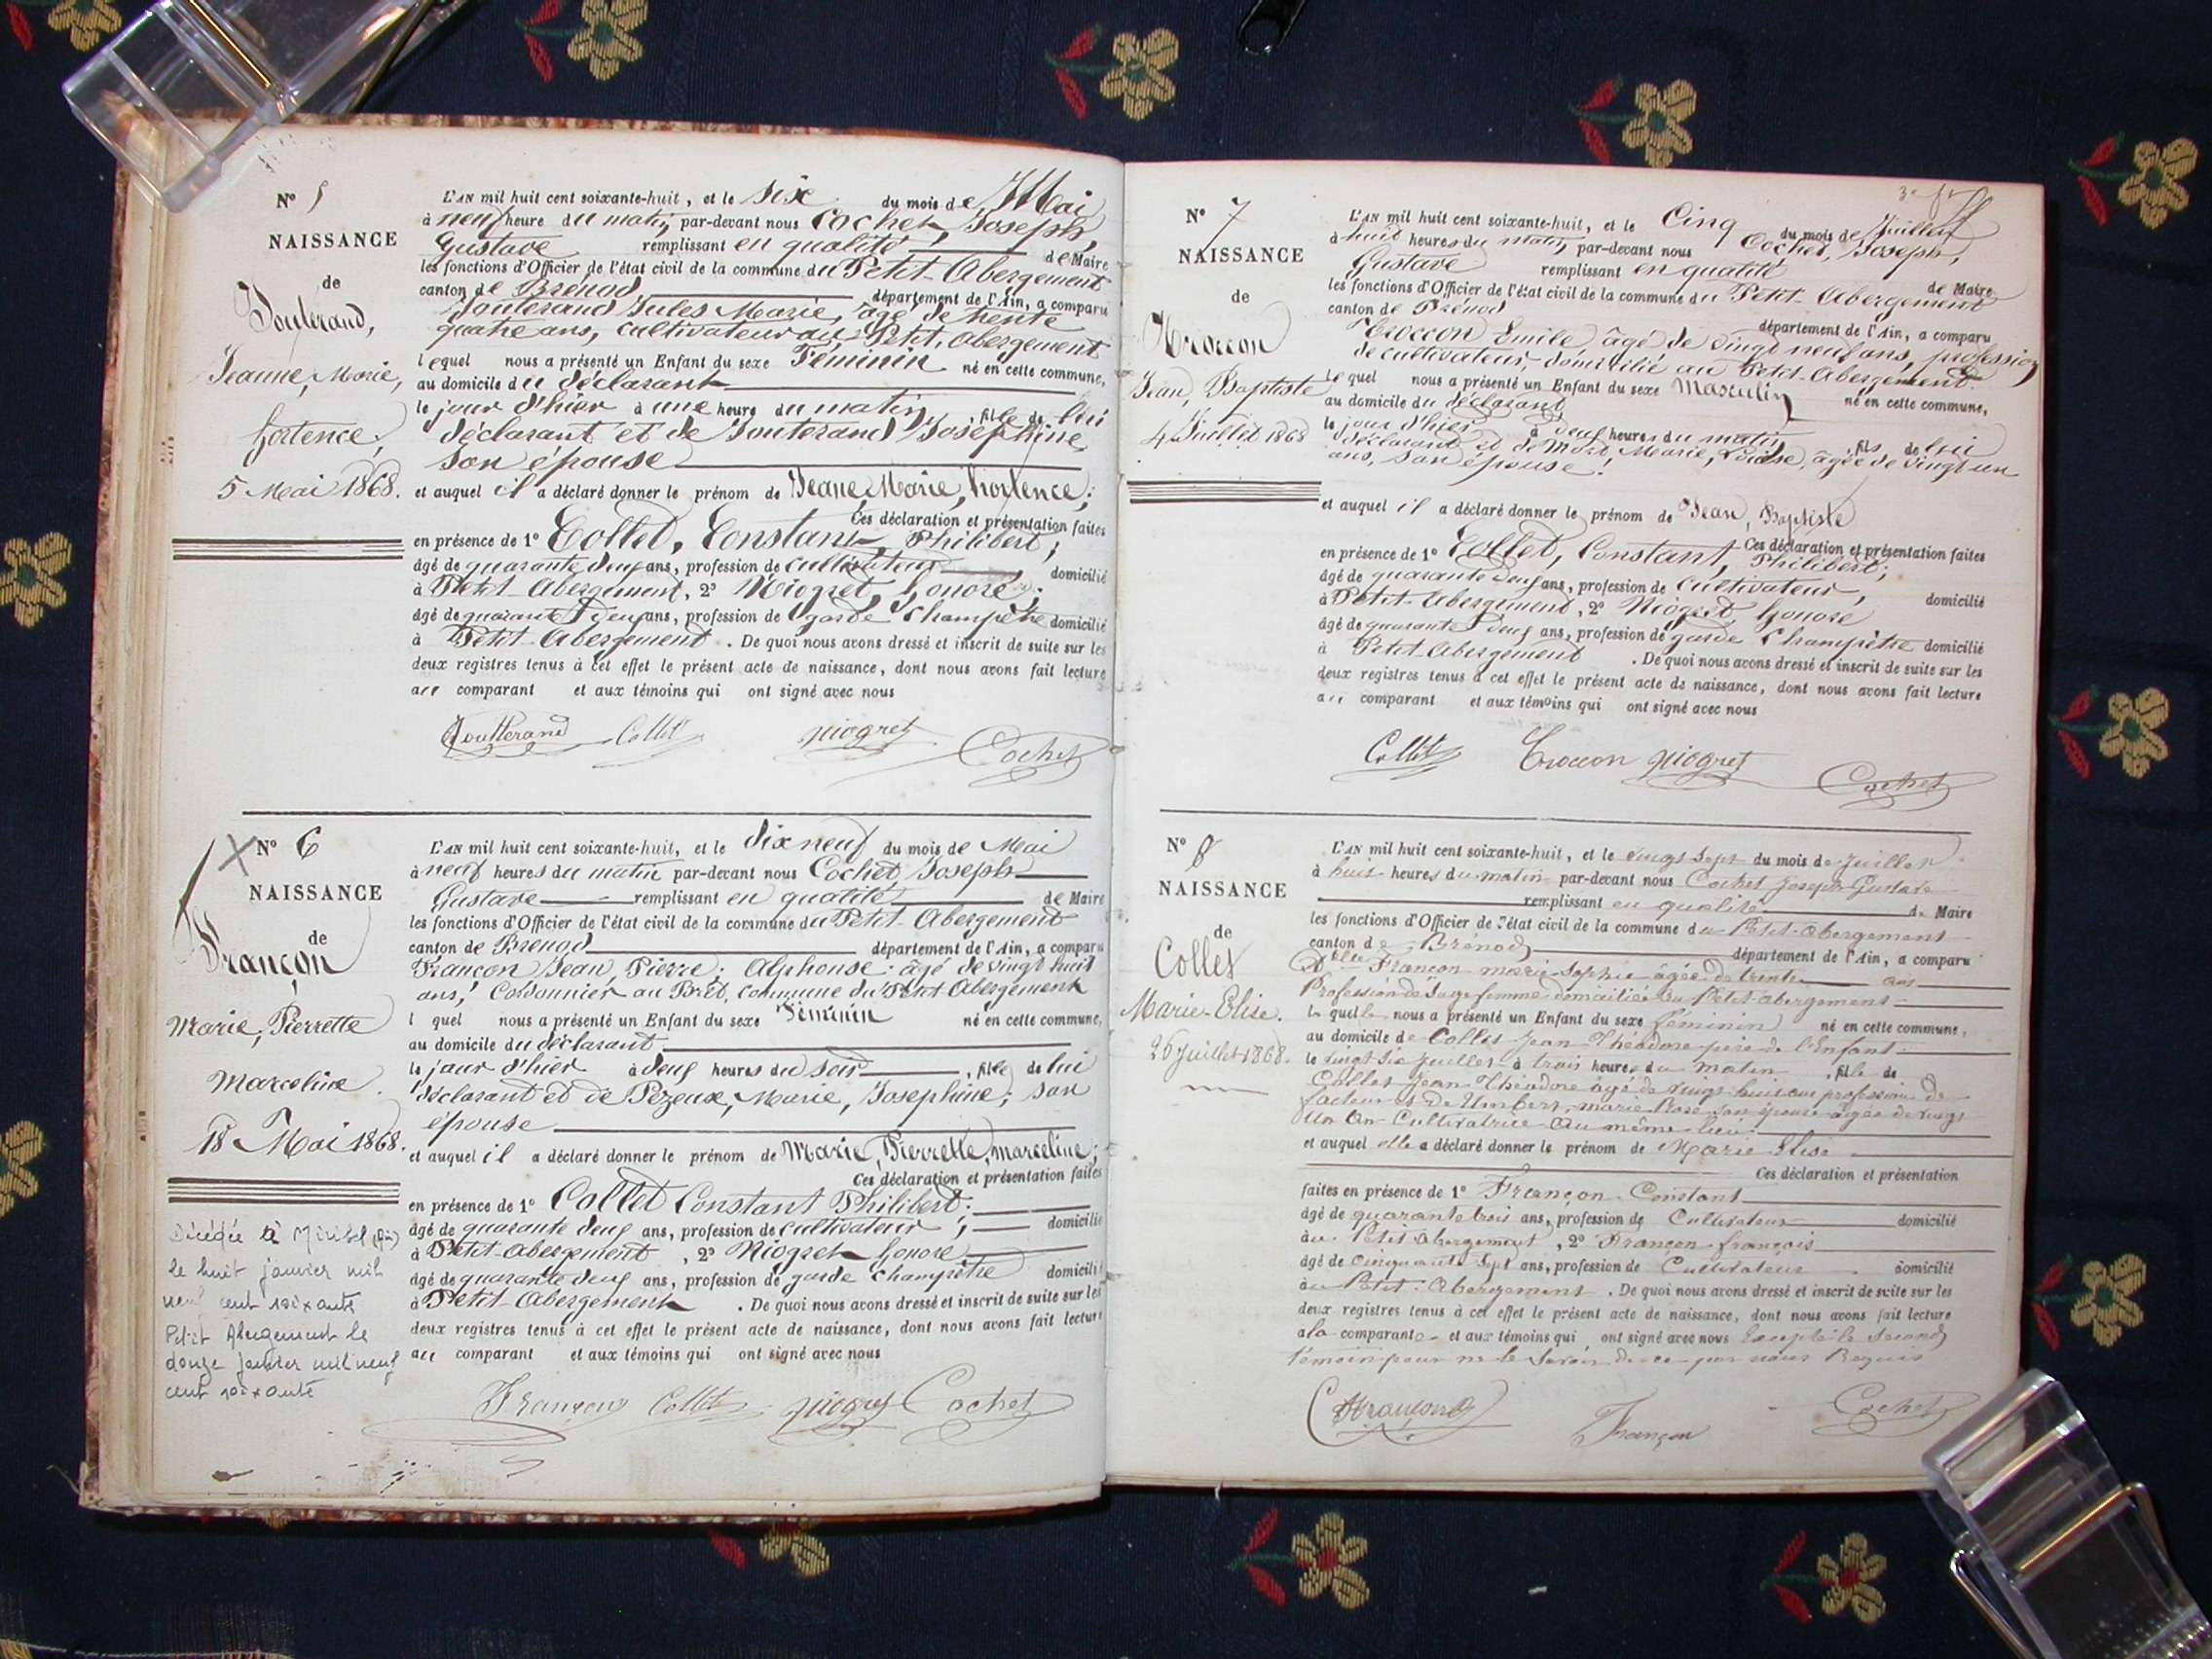 N° 5
NAISSANCE
de
Jouterand,
Jeanne, Marie,
hortence;
5 Mai 1868.
L'AN mil huit cent soixante-huit, et le six du mois de Mai
à neuf heure du matin, par-devant nous Cochet, Joseph,
Gustave remplissant en qualité de Maire
les fonctions d'Officier de l'état civil de la commune du Petit-Abergement
canton de Brénod département de l'Ain, a comparu
Jouterand Jules Marie, âgé de trente
quatre ans, cultivateur au Petit, abergement
lequel nous a présenté un Enfant du sexe Féminin né en cette commune,
au domicile du déclarant
le jour d'hier à une heure du matin, fille de lui
déclarant et de Jouterand Joséphine
son épouse
et auquel il a déclaré donner le prénom de Jeane, Marie, hortence;
Ces déclaration et présentation faites
en présence de 1° Collet, Constant Philibert;
âgé de quarante deux ans, profession de cultivateur domicilié
à Petit Abergement, 2° Niogret, honoré;
âgé de quarante deux ans, profession de garde Champêtre domicilié
à Petit-Abergement. De quoi nous avons dressé et inscrit de suite sur les
deux registres tenus à cet effet le présent acte de naissance, dont nous avons fait lecture
au comparant et aux témoins qui ont signé avec nous
Jouterand Collet niogret Cochet
N° 6
NAISSANCE
de
Françon
Marie, Pierrette
Marceline.
18 Mai 1868.
L'AN mil huit cent soixante-huit, et le dix neuf du mois de Mai
à neuf heures du matin par-devant nous Cochet Joseph
Gustave remplissant en qualité de Maire
les fonctions d'Officier de l'état civil de la commune du Petit-Abergement
canton de Brenod département de l'Ain, a comparu
Françon Jean, Pierre; Alphonse; âgé de vingt huit
ans, Cordonnier au Bret, commune du Petit Abergement
l quel nous a présenté un Enfant du sexe Féminin né en cette commune,
au domicile du déclarant
le jour d'hier à deux heures du soir, fille de lui
déclarant et de Pezeux, Marie, Josephine; son
épouse
et auquel il a déclaré donner le prénom de Marie, Pierrette, marceline;
Ces déclaration et présentation faites
en présence de 1° Collet Constant Philibert;
âgé de quarante deux ans, profession de cultivateur; domicilié
à Petit-Abergement, 2° Niogret honoré
âgé de quarante deux ans, profession de garde champêtre domicilié
à Petit-Abergement. De quoi nous avons dressé et inscrit de suite sur les
deux registres tenus à cet effet le présent acte de naissance, dont nous avons fait lecture
au comparant et aux témoins qui ont signé avec nous
Décédée à Miribel (Ain)
le huit janvier mil
neuf cent soixante
Petit Abergement le
douze janvier mil neuf
cent soixante
Françon Collet niogret Cochet
N° 7
NAISSANCE
de
Troccon
Jean, Baptiste
4 Juillet 1868
L'AN mil huit cent soixante-huit, et le Cinq du mois de Juillet
à huit heures du matin, par-devant nous Cochet, Joseph,
Gustave remplissant en qualité de Maire
les fonctions d'Officier de l'état civil de la commune du Petit-Abergement
canton de Brénod département de l'Ain, a comparu
Troccon Emile âgé de vingt neuf ans, profession
de cultivateur, domicilié au Petit-Abergement.
lequel nous a présenté un Enfant du sexe Masculin né en cette commune,
au domicile du déclarant
le jour d'hier à deux heures du matin, fils de lui
déclarant et de Mort, Marie, Louise, âgée de vingt un
ans, son épouse.
et auquel il a déclaré donner le prénom de Jean, Baptiste
Ces déclaration et présentation faites
en présence de 1° Collet, Constant, Philibert;
âgé de quarante deux ans, profession de Cultivateur, domicilié
à Petit-Abergement, 2° Niogret, honoré
âgé de quarante deux ans, profession de garde Champêtre domicilié
à Petit-Abergement. De quoi nous avons dressé et inscrit de suite sur les
deux registres tenus à cet effet le présent acte de naissance, dont nous avons fait lecture
au comparant et aux témoins qui ont signé avec nous
Collet Troccon niogret Cochet
N° 8
NAISSANCE
de
Collet
Marie-Elise.
26 juillet 1868.
L'AN mil huit cent soixante-huit, et le vingt sept du mois de Juillet
à huit heures du matin par-devant nous Cochet Joseph Gustave
remplissant en qualité de Maire
les fonctions d'Officier de l'état civil de la commune du Petit-Abergement
canton de Brénod département de l'Ain, a comparu
Dlle Françon marie Sophie âgée de trente ans
Profession de Sage femme domiciliée au Petit-abergement
la quelle nous a présenté un Enfant du sexe féminin né en cette commune,
au domicile de Collet Jean Théodore père de l'Enfant
le vingt six juillet à trois heures du matin, fille de
Collet Jean Théodore âgé de vingt huit ans profession de
facteur et de Umbert, marie Rose son épouse âgée de vingt
un an Cultivatrice au même lieu
et auquel elle a déclaré donner le prénom de Marie Elise
Ces déclaration et présentation
faites en présence de 1° Françon Constant
âgé de quarante trois ans, profession de Cultivateur domicilié
au Petit abergement, 2° Françon françois
âgé de cinquante sept ans, profession de Cultivateur domicilié
au Petit-Abergement. De quoi nous avons dressé et inscrit de suite sur les
deux registres tenus à cet effet le présent acte de naissance, dont nous avons fait lecture
a la comparante et aux témoins qui ont signé avec nous Excepté le Second
témoin pour ne le Savoir de ce par nous Requis
Françon Françon Cochet